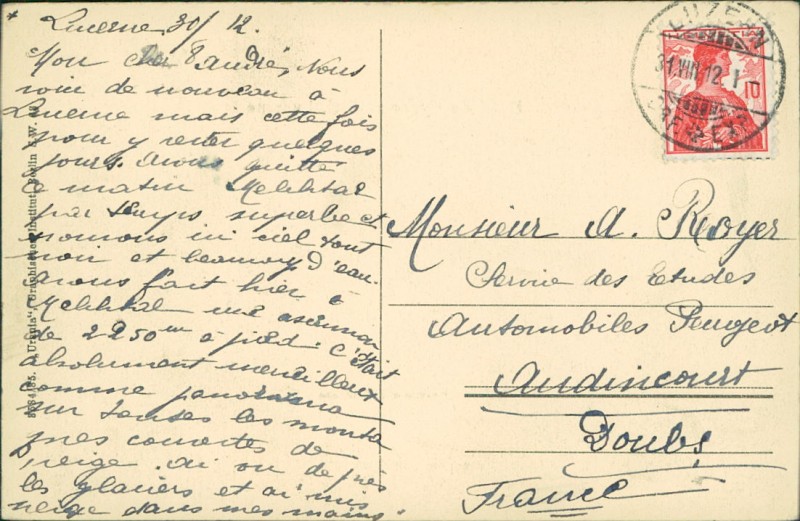 Lucerne 30/12.
Mon cher André, Nous
voici de nouveau à
Lucerne mais cette fois
pour y rester quelques
jours. Avons quitté
ce matin Melchtal
par temps superbe et
trouvons ici ciel tout
noir et beaucoup d'eau.
Avons fait hier à
Melchtal une ascension
de 2250 m à pied. C'était
absolument merveilleux
comme panorama
sur toutes les monta
gnes couvertes de
neige. Ai vu de près
les glaciers et ai mis
neige dans mes mains
Monsieur A. Royer
Service des Etudes
Automobiles Peugeot
Audincourt
Doubs
France
LUZERN
31.VIII.12.1
"Urania", Graphisches Institut, Berlin S.W.